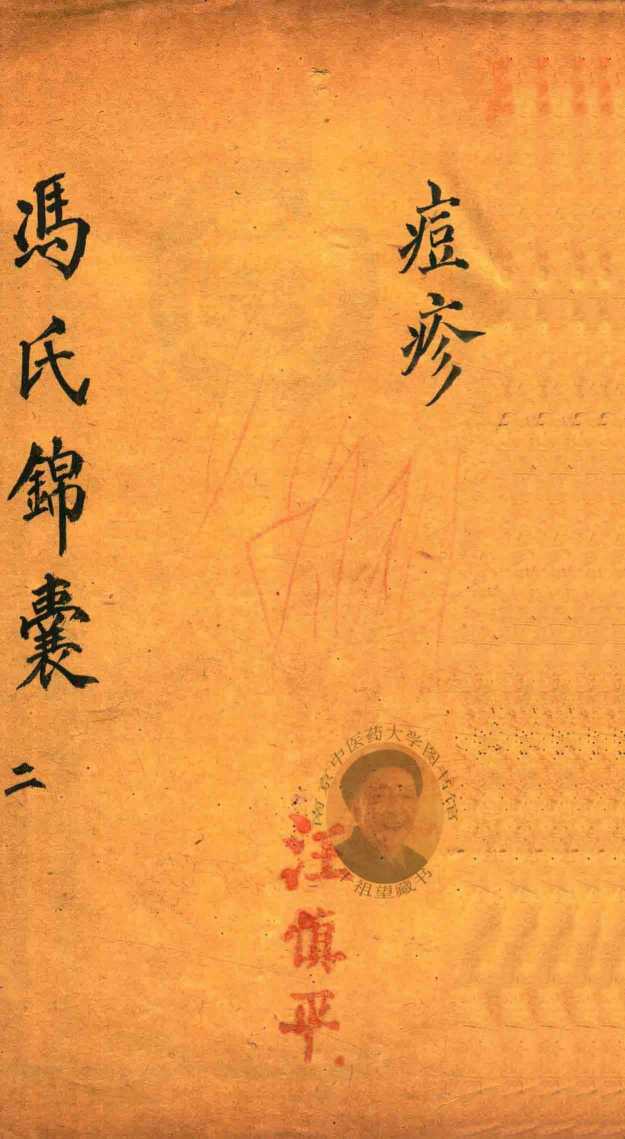 痘疹
南京中医药大学图书馆
干祖望藏书
汪慎平
馮氏錦囊 二